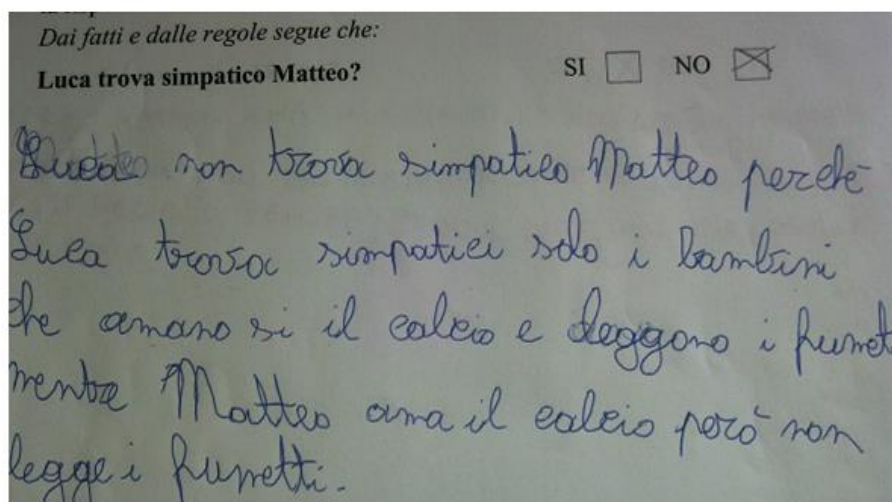 Dai fatti e dalle regole segue che:
Luca trova simpatico Matteo?
SI NO
Luca non trova simpatico Matteo perchè
Luca trova simpatici solo i bambini
che amano si il calcio e leggono i fumet
mentre Matteo ama il calcio però non
legge i fumetti.